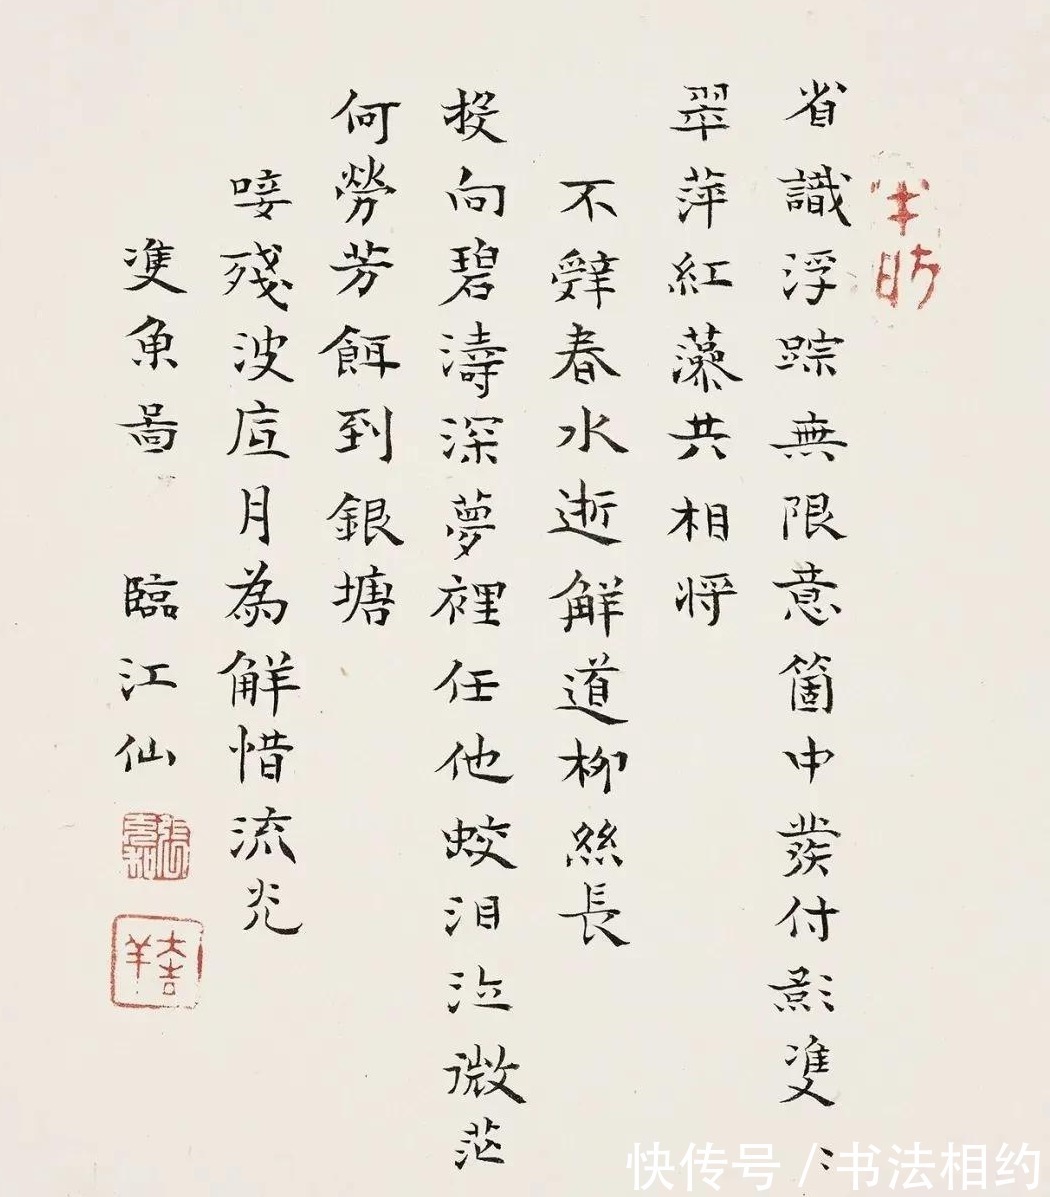 省識浮踪無限意箇中發付影雙〻
翠萍紅藻共相將
不辭春水逝解道柳絲長
投向碧濤深夢裡任他蛟泪泣微茫
何勞芳餌到銀塘
唼殘波底月為解惜流光
雙魚圖 臨江仙
大吉羊
快传号 / 书法相约